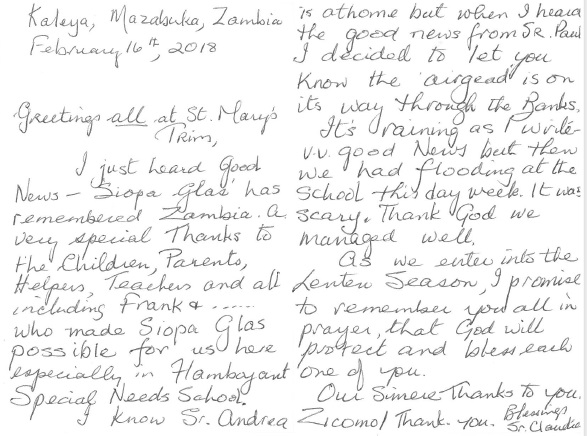 Kaleya, Mazabuka, Zambia
February 16th, 2018
Greetings all at St. Mary's
Trim,
I just heard Good
News – 'Siopa Glas' has
remembered Zambia. A
very special Thanks to
the Children, Parents,
Helpers, Teachers and all
including Frank & ......
who made Siopa Glas
possible for us here
especially in Flamboyant
Special Needs School.
I know Sr. Andrea
is at home but when I heard
the good news from Sr. Paul
I decided to let you
know the 'airgead' is on
its way through the Banks.
It's raining as I write
v.v. good News but then
we had flooding at the
School this day week. It was
scary. Thank God we
managed well.
As we enter into the
Lenten Season, I promise
to remember you all in
prayer, that God will
protect and bless each
one of you.
Our Sincere Thanks to you.
Zicomo! Thank you. Blessings
Sr. Claudia